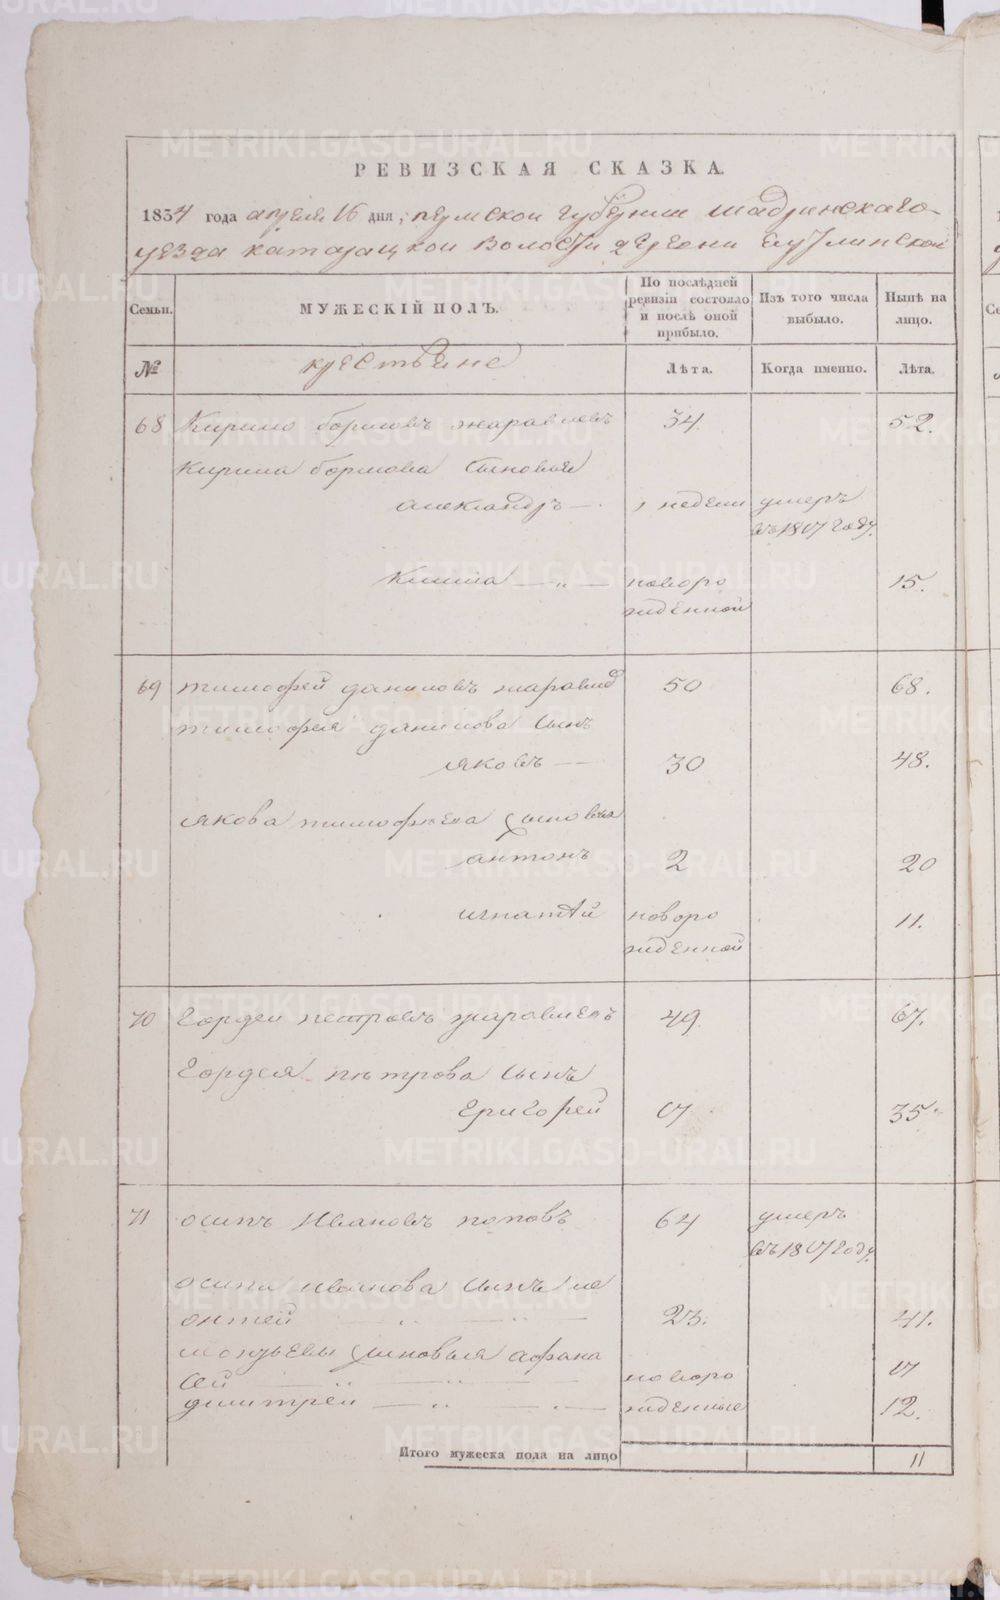 РЕВИЗСКАЯ СКАЗКА.
1834 года апреля 16 дня, пермской губернии шадринскаго
уезда катайцкой волости деревни
Семьи. МУЖЕСКІЙ ПОЛЪ. По послѣдней ревизіи состояло и послѣ оной прибыло. Изъ того числа выбыло. Нынѣ на лицо.
№ крестьяне Лѣта. Когда именно. Лѣта.
68 Кирило борисовъ жаравлевъ 34 52.
Кирила борисова сыновья
александръ 1 недели умеръ
въ 1817 году.
новоро 15.
жденной
69 тимофей даниловъ 50 68.
тимофея данилова сынъ
яковъ 30 48.
якова тимофеева сыновья
антонъ 2 20
игнатей новоро 11.
жденной
70 гордеи петровъ жаравлевъ 49 67.
гордея петрова сынъ
григорей 17 35
71 осипъ ивановъ поповъ 64 умеръ
въ 1817 году
осипа иванова сынъ ле
онтей 23. 41.
леонтьевы сыновья афана
сей новоро 17
дмитрей жденные 12.
Итого мужеска пола на лицо 11
METRIKI.GASO-URAL.RU